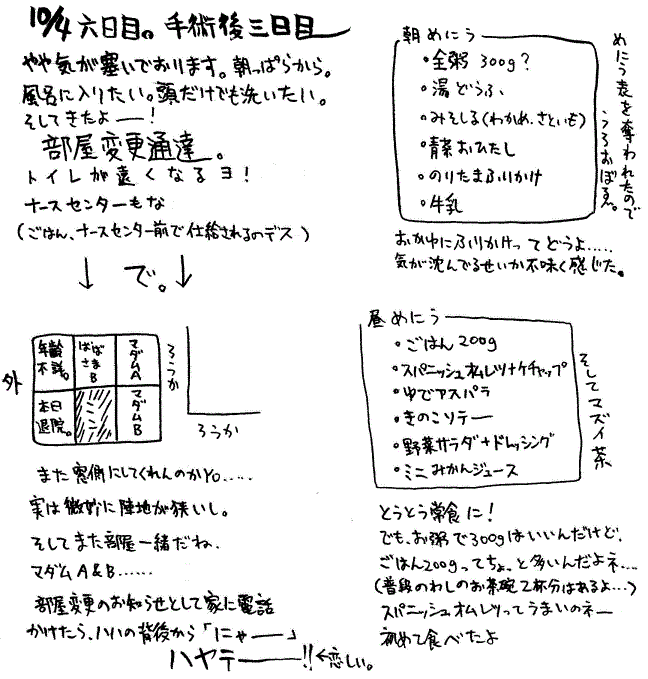 10/4 六日目。手術後三日目
やや気が塞いでおります。朝っぱらから。
風呂に入りたい。頭だけでも洗いたい。
そしてきたよー!
部屋変更通達。
トイレが遠くなるヨ!
ナースセンターもな
(ごはん、ナースセンター前で仕給されるのデス)
↓ で。↓
外
年齢不詳。
ばばさまB
マダムA
本日退院。
ミシン
マダムB
ろうか
ろうか
また窓側にしてくれんのかYo……
実は微妙に陣地が狭いし。
そしてまた部屋一緒だね、
マダムA&B……
部屋変更のお知らせとして家に電話
かけたら、ハハの背後から「にゃー」
ハヤテー!!←恋しい。
朝めにう
・全粥 300g?
・湯どうふ
・みそしる(わかめ、さといも)
・青菜おひたし
・のりたまふりかけ
・牛乳
めにう表を奪われたので
うろおぼえ。
おかゆにふりかけってどうよ……
気が沈んでるせいか不味く感じた。
昼めにう
・ごはん 200g
・スパニッシュオムレツ+ケチャップ
・ゆでアスパラ
・きのこソテー
・野菜サラダ+ドレッシング
・ミニみかんジュース
そしてマズイ茶
とうとう常食に!
でも、お粥で300gはいいんだけど、
ごはん200gってちょっと多いんだよネ…
(普段のわしのお茶碗2杯分はあるよ…)
スパニッシュオムレツってうまいのネー
初めて食べたよ